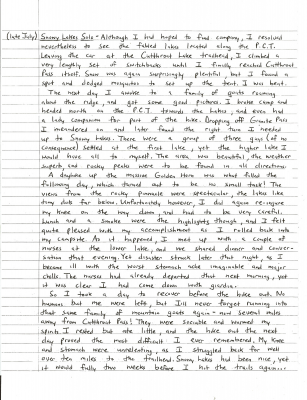 (late July) Snowy Lakes Solo - Although I had hoped to find company, I resolved
nevertheless to see the fabled lakes located along the P.C.T.
Leaving the car at the Cutthroat Lake trailhead, I climbed a
very lengthy set of switchbacks until I finally reached Cutthroat
Pass itself. Snow was again surprisingly plentiful, but I found a
spot and dodged mosquitos to set up the tent. I was beat.
The next day I awoke to a family of goats roaming
about the ridge, and got some good pictures. I broke camp and
headed north on the P.C.T. towards the lakes, and even had
a lady companion for part of the hike. Dropping off Granite Pass
I meandered on and later found the right turn I needed
up to Snowy Lakes. There were a group of three guys (of no
consequence) settled at the first lake, yet the higher lake I
would have all to myself. The area was beautiful, the weather
superb, and rocky peaks were to be found in all directions.
A dayhike up the massive Golden Horn was what filled the
following day, which turned out to be no small task! The
views from the rocky pinnacle were spectacular, the lakes like
tiny dots far below. Unfortunately however, I did again re-injure
my knee on the way down, and had to be very careful.
Lunch and a smoke were the highlights though, and I felt
quite pleased with my accomplishment as I rolled back into
my campsite. As it happened, I met up with a couple of
nurses at the lower lake, and we shared dinner and conver-
sation that evening. Yet disaster struck later that night, as I
became ill with the worst stomach ache imaginable and major
chills. The nurses had already departed that next morning, yet
it was clear I had come down with giardia.
So I took a day to recover before the hike out. No
humans but me were left, but I'll never forget running into
that same family of mountain goats again - now several miles
away from Cutthroat Pass! They were sociable and warmed my
spirits. I rested but ate little, and the hike out the next
day proved the most difficult I ever remembered. My knee
and stomach were unrelenting, as I struggled back for well
over ten miles to the trailhead. Snowy Lakes had been nice, yet
it would fully two weeks before I hit the trails again...